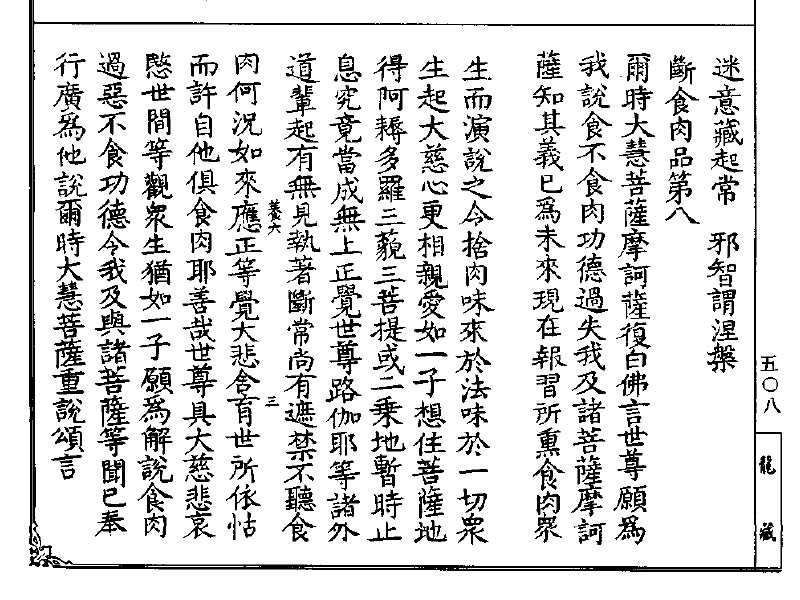 迷意藏起常　邪智謂涅槃
斷食肉品第八
爾時大慧菩薩摩訶薩復白佛言世尊願爲
我說食不食肉功德過失我及諸菩薩摩訶
薩知其義已爲未來現在報習所熏食肉眾
生而演說之令捨肉味求於法味於一切眾
生起大慈心更相親愛如一子想住菩薩地
得阿耨多羅三藐三菩提或二乘地暫時止
息究竟當成無上正覺世尊路伽耶等諸外
道輩起有無見執著斷常尚有遮禁不聽食
養六
三
肉何況如來應正等覺大悲含育世所依怙
而許自他俱食肉耶善哉世尊具大慈悲哀
愍世間等觀眾生猶如一子願爲解說食肉
過惡不食功德令我及與諸菩薩等聞已奉
行廣爲他說爾時大慧菩薩重說頌言
五〇八
龍藏